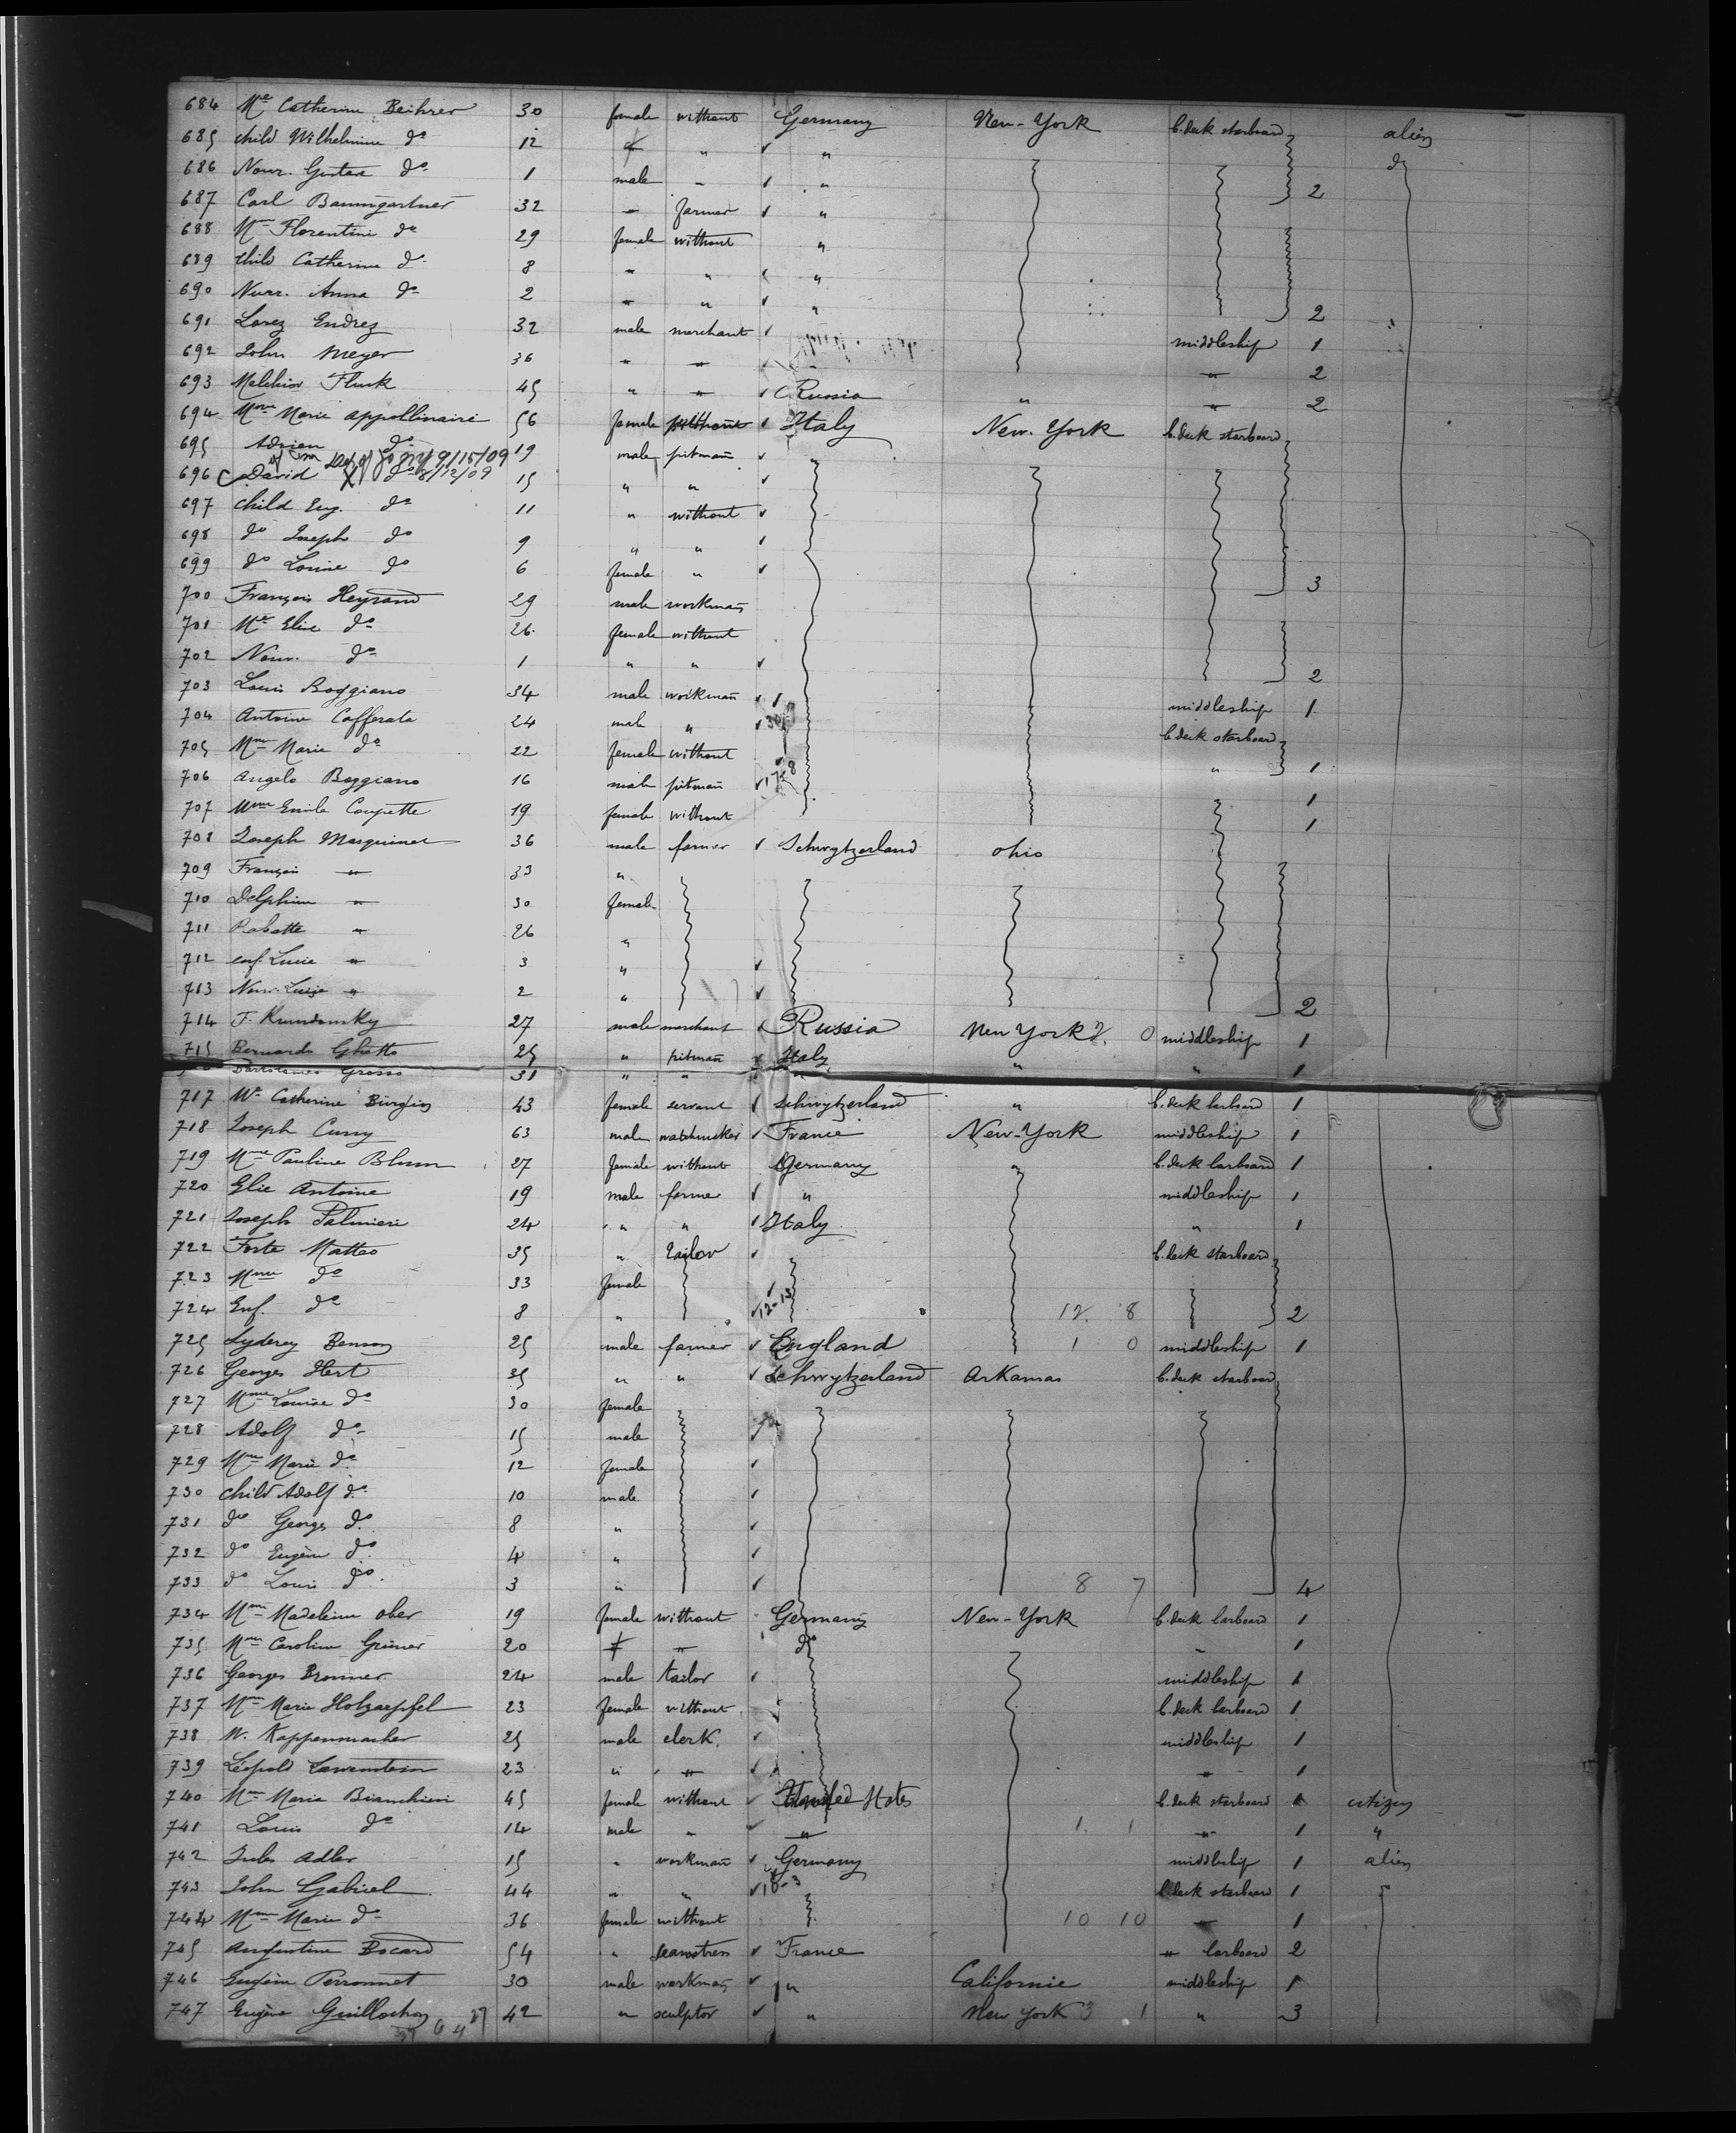 684 Me Catherine Beihrer 30 female without Germany New-York b.deck starboard alien
685 child Wilhelmine do 12 " " do
686 Nour. Gustave do 1 male " " 2
687 Carl Baumgartner 32 " farmer "
688 Mme Florentine do 29 female without "
689 child Catherine do 8 " " "
690 Nurr. Anna do 2 " " " 2
691 Lorez Endrez 32 male merchant middleship 1
692 John Meyer 36 " " " 2
693 Melchior Flunk 45 " " Russia " " 2
694 Mme Marie Appollinaire 56 female without Italy New-York b.deck starboard
695 Adrien do 19 male pitman
696 David do 8/12/09 15 " "
697 child Eug. do 11 " without
698 do Joseph do 9 " "
699 do Louise do 6 female " 3
700 François Heyraud 29 male workman
701 Me Elise do 26 female without
702 Nour. do 1 " " 2
703 Louis Boggiano 34 male workman middleship 1
704 Antoine Cafferata 24 male " b.deck starboard
705 Mme Marie do 22 female without " 1
706 Angelo Boggiano 16 male pitman 1
707 Mme Emile Coupette 19 female without 1
708 Joseph Masquinet 36 male farmer Schwytzerland ohio
709 François " 33 "
710 Delphine " 30 female
711 Babette " 26 "
712 enf. Lucie " 3 "
713 Nour. " 2 " 2
714 J. 27 male merchant Russia New York 2. 0 middleship 1
715 Bernardo Ghatto 25 " pitman Italy " " 1
Bartolomeo Grosso 31 " " "
717 Me Catherine Bürgin 43 female servant Schwytzerland " b.deck larboard 1
718 Joseph Cuny 63 male watchmaker France New-York middleship 1
719 Mme Pauline Blum 27 female without Germany " b.deck larboard 1
720 Elie Antoine 19 male farmer " middleship 1
721 Joseph Palmieri 24 " " Italy " 1
722 Forte Matteo 35 " tailor b.deck starboard
723 Mme do 33 female
724 Enf. do 8 " 12-13 12. 8 2
725 Benson 25 male farmer England 1 0 middleship 1
726 Georges Hert 35 " " Schwytzerland Arkansas b.deck starboard
727 Mme Louise do 30 female
728 Adolf do 15 male
729 Mme Marie do 12 female
730 child Adolf do 10 male
731 do Georges do 8 "
732 do Eugène do 4 "
733 do Louis do 3 " 8 7 4
734 Mme Madeleine Ober 19 female without Germany New-York b.deck larboard 1
735 Mme Caroline Grüner 20 " " do " 1
736 Georges Bronner 24 male tailor middleship 1
737 Mme Marie Holzaepfel 23 female without b.deck larboard 1
738 W. Kappenmacher 25 male clerk middleship 1
739 Léopold Lowenstein 23 " " " 1
740 Mme Maria Bianchieri 45 female without United States b.deck starboard 1 citizen
741 Louis do 14 male " " 1. 1 " 1 "
742 Jules Adler 15 " workman Germany middleship 1 alien
743 John Gabriel 44 " " 18-3 b.deck starboard 1
744 Mme Marie do 36 female without 10 10 " 1
745 Augustine Bocard 54 " seamstress France " larboard 2
746 Eugène Perronnet 30 male workman " Californie middleship 1
747 Eugène Guillochon 42 " sculptor " New York 3 1 " 3